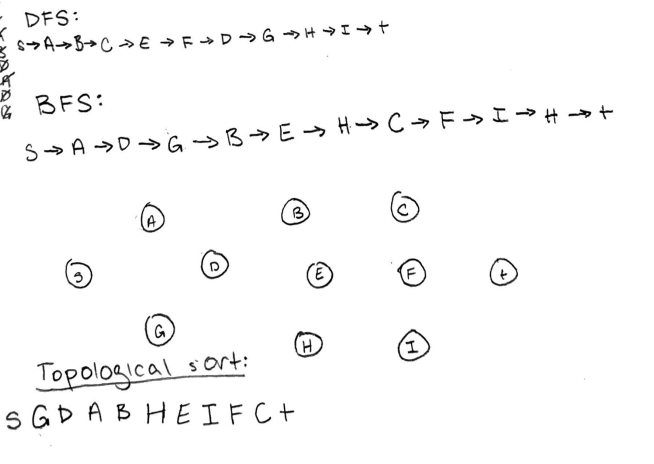 DFS:
S→A→B→C→E→F→D→G→H→I→t
BFS:
S→A→D→G→B→E→H→C→F→I→H→t
A B C
S D E F t
G H I
Topological sort:
S G D A B H E I F C t